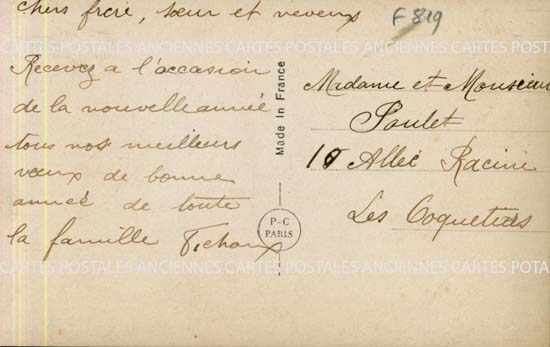 chers frère, sœur et neveux
F 819
Recevez a l'accasion
de la nouvelle année
tous nos meilleurs
vœux de bonne
année de toute
la famille
Made In France
P-C
PARIS
Madame et Monsieur
Poulet
10 Allée Racine
Les Coquetiers
CARTES POSTALES ANCIENNES CARTES POSTALES ANCIENNES CARTES POSTALES